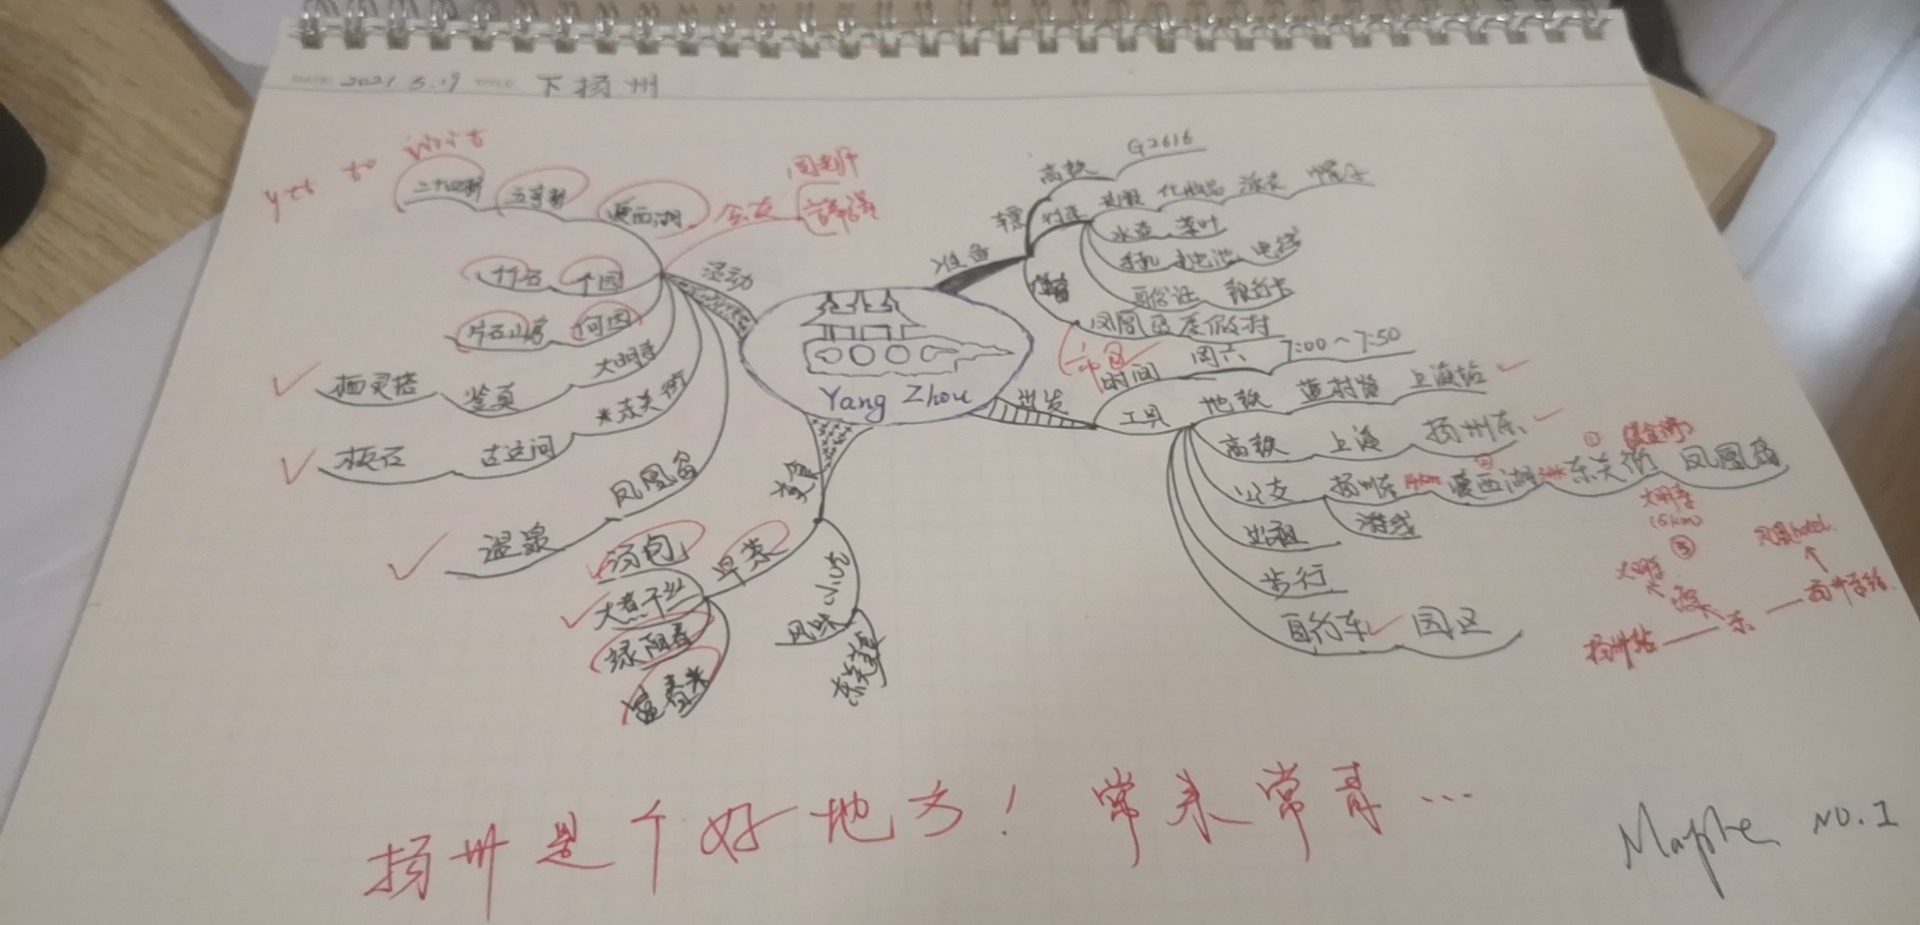 DATE 2021 5.19 下扬州
yet to visit
二十四桥 五亭桥 瘦西湖 公交
竹石 个园
片石山房 何园
栖灵塔 鉴真 大明寺
板石 古运河 *东关街
温泉 凤凰岛
活动
准备
高铁 G2616
行李 化妆品 泳衣 帽子
水壶 茶叶
手机 充电池 电线
身份证 银行卡
住宿
凤凰岛度假村
Yang Zhou
出发
时间 周六 7:00~7:50
工具 地铁 蓝村路 上海站
高铁 上海 扬州东
公交 扬州东 瘦西湖 东关街 凤凰岛
② ①
游线
出租
步行
自行车 园区
大明寺
(5km)
③
凤凰hotel
大明寺
扬州站 东
美食
早茶
汤包
大煮干丝
绿阳春
富春茶
风味小吃
东关街
扬州是个好地方! 常来常青…
NO.1